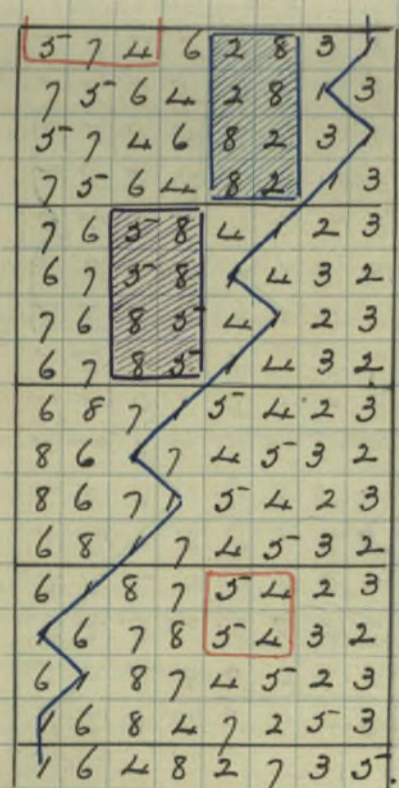 5 7 4 6 2 8 3 1
7 5 6 4 2 8 1 3
5 7 4 6 8 2 3 1
7 5 6 4 8 2 1 3
7 6 5 8 4 1 2 3
6 7 5 8 1 4 3 2
7 6 8 5 4 1 2 3
6 7 8 5 1 4 3 2
6 8 7 1 5 4 2 3
8 6 1 7 4 5 3 2
8 6 7 1 5 4 2 3
6 8 1 7 4 5 3 2
6 1 8 7 5 4 2 3
1 6 7 8 5 4 3 2
6 1 8 7 4 5 2 3
1 6 8 4 7 2 5 3
1 6 4 8 2 7 3 5.